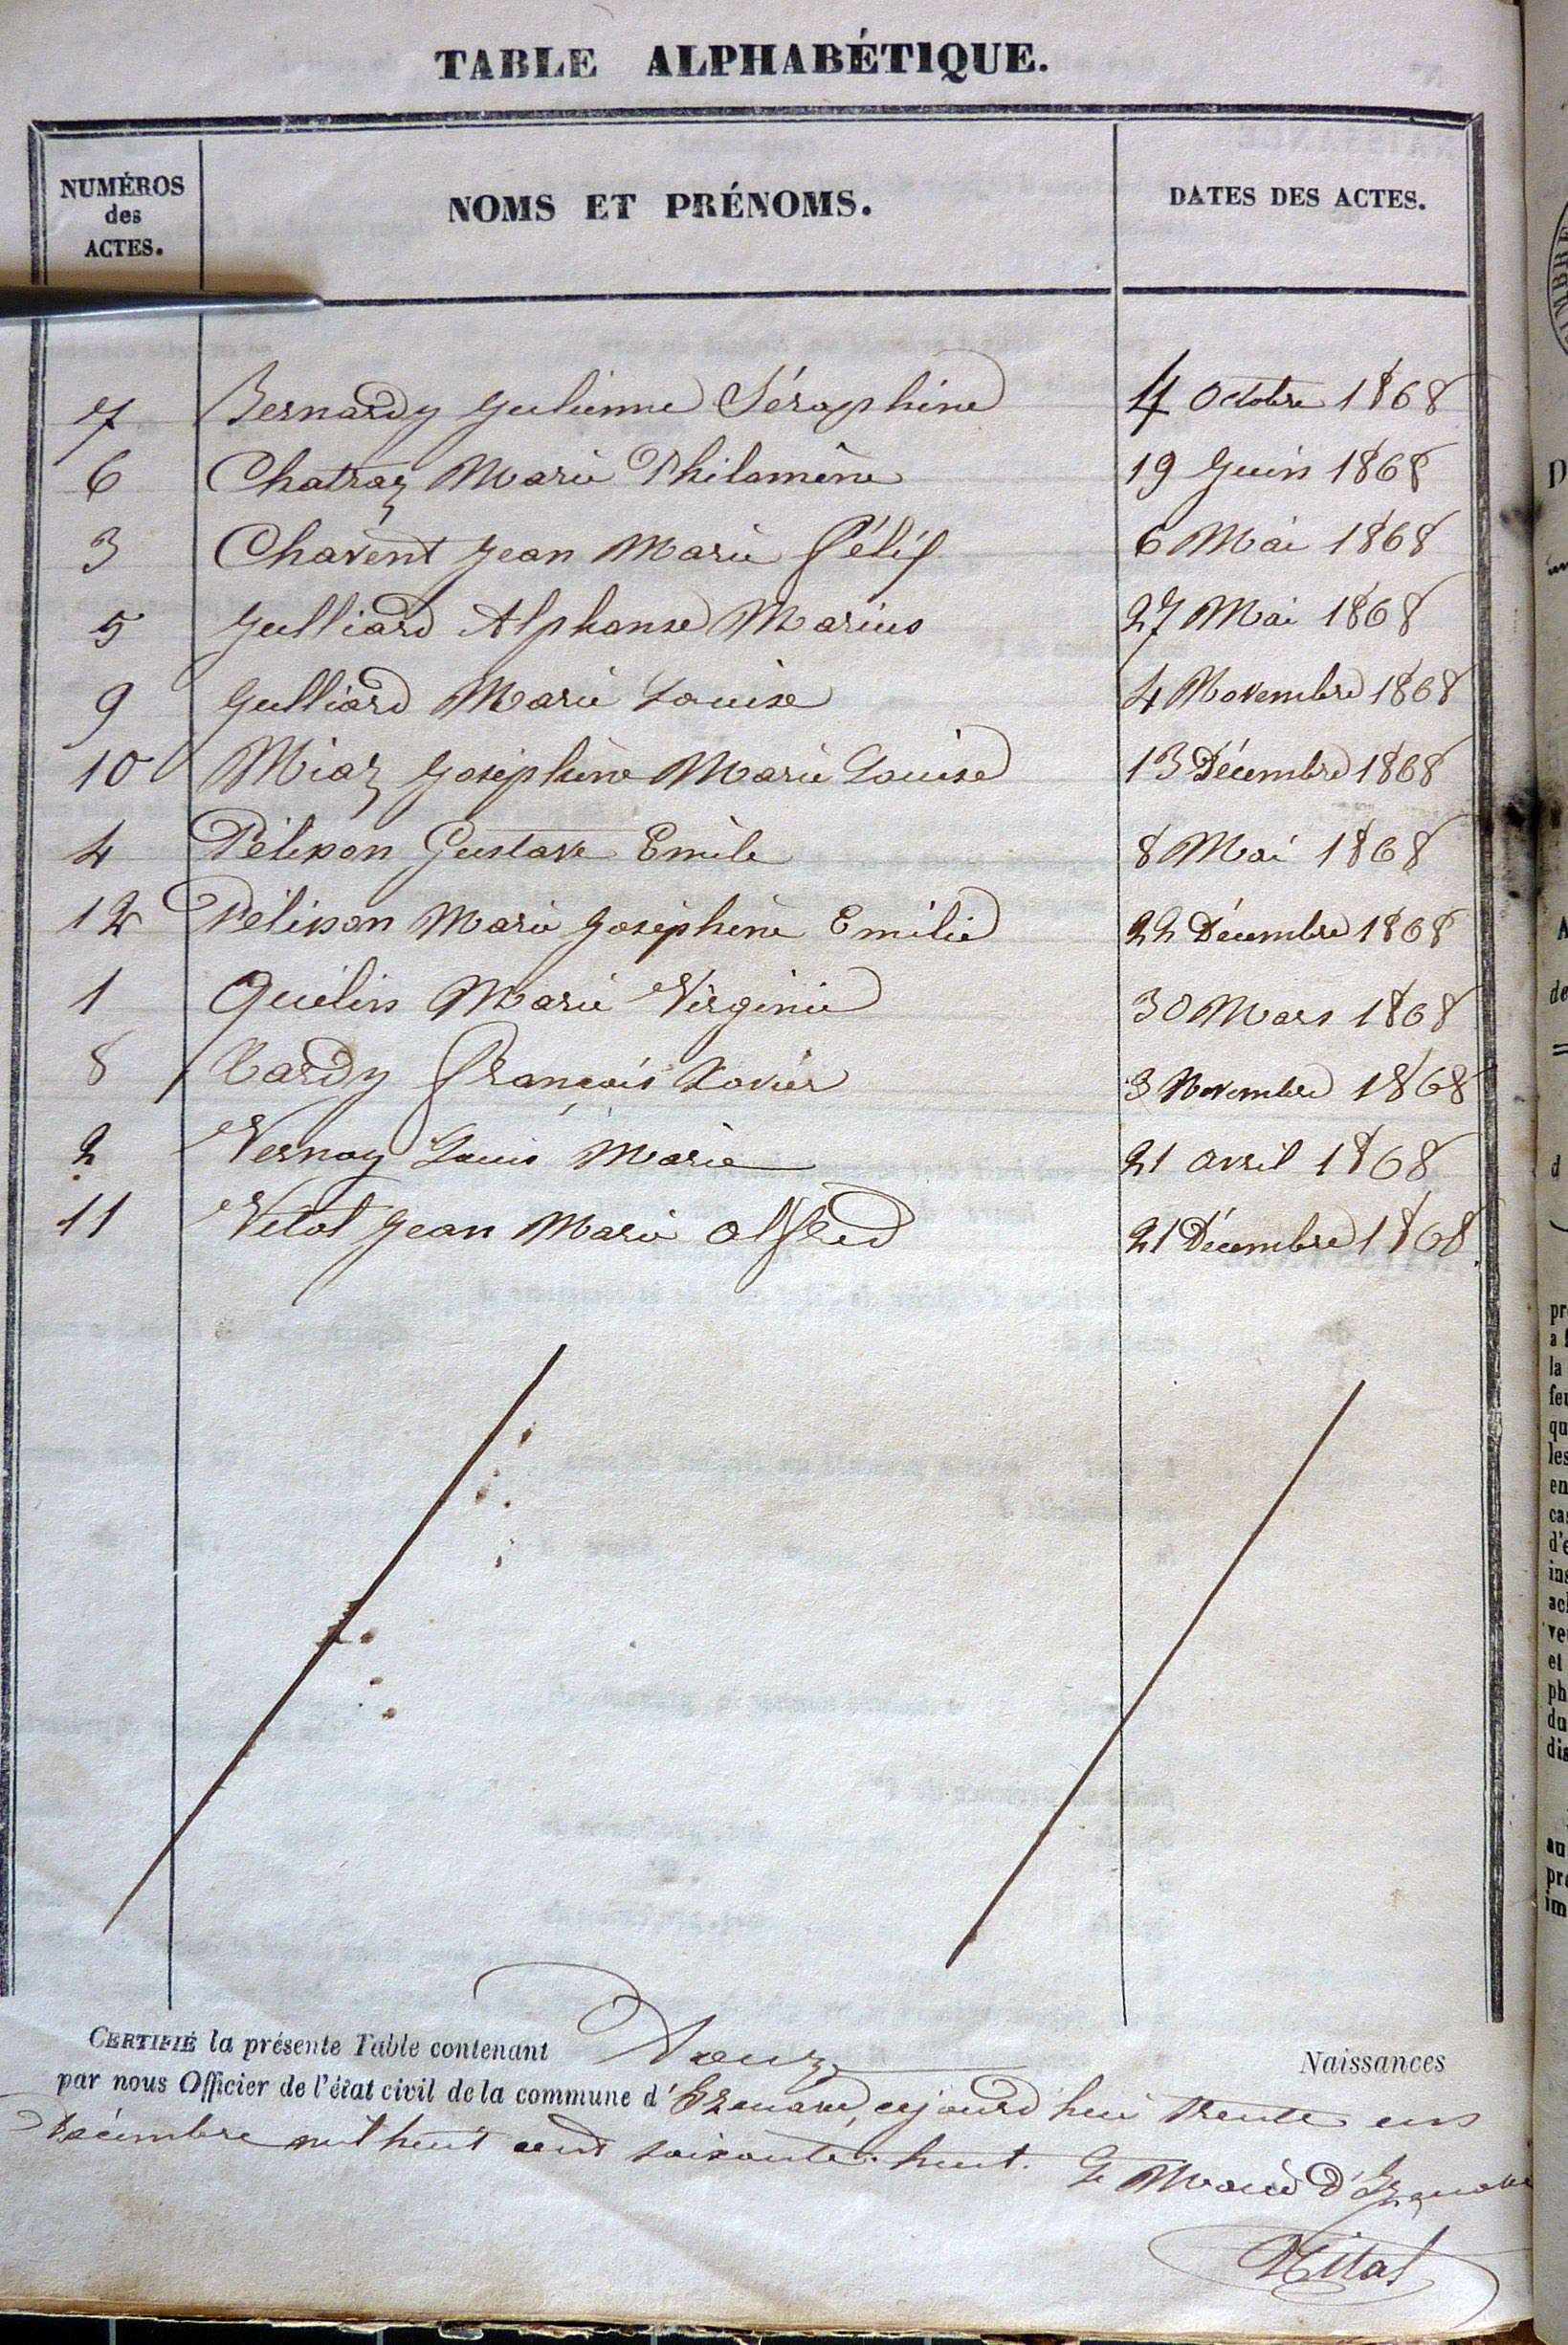 TABLE ALPHABÉTIQUE.
NUMÉROS des ACTES. NOMS ET PRÉNOMS. DATES DES ACTES.
7 Bernardy Julienne Séraphine 4 Octobre 1868
6 Chatraz Marie Philomène 19 Juin 1868
3 Chavent Jean Marie Félix 6 Mai 1868
5 Julliard Alphonse Marius 27 Mai 1868
9 Julliard Marie Louise 4 Novembre 1868
10 Miaz Joséphine Marie Louise 13 Décembre 1868
4 Pélisson Gustave Emile 8 Mai 1868
12 Pélisson Marie Joséphine Emilie 22 Décembre 1868
1 Quélin Marie Virginie 30 Mars 1868
8 Tardy François Xavier 3 Novembre 1868
2 Vernay Louis Marie 21 avril 1868
11 Vital Jean Marie Alfred 21 Décembre 1868
CERTIFIÉ la présente Table contenant Douze Naissances
par nous Officier de l'état civil de la commune d' Izenave, cejourd'hui trente un
Décembre mil huit cent soixante-huit. Le Maire d'Izenave
Vital